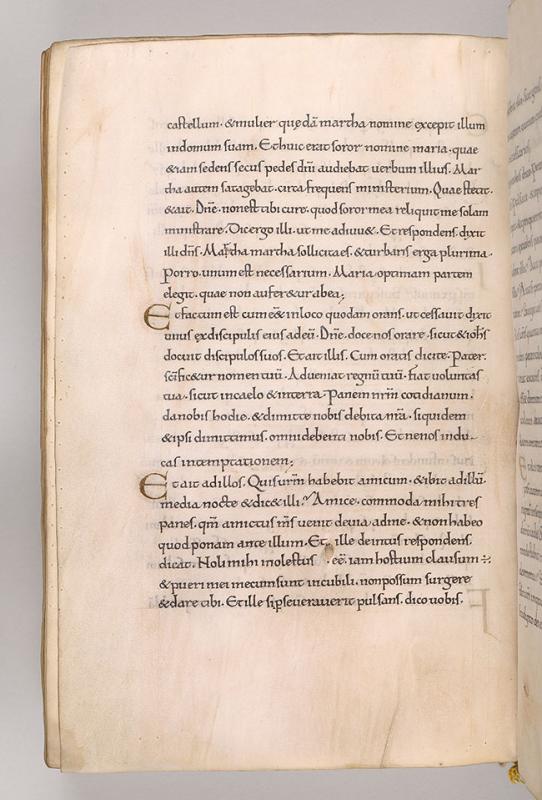 castellum. & mulier quędā martha nomine excepit illum
in domum suam. Et huic erat soror nomine maria. quae
&iam sedens secus pedes dn̄i audiebat verbum illius. Mar
tha autem satagebat. circa frequens ministerium. Quae stetit.
& ait. Dn̄e. non est tibi curę. quod soror mea reliquit me solam
ministrare. Dic ergo illi. ut me adiuu&. Et respondens. dixit
illi dn̄s. Martha martha sollicita es. & turbaris erga plurima.
Porro. unum est necessarium. Maria optimam partem
elegit. quae non aufer&ur ab ea;
Et factum est cum eēt in loco quodam orans. ut cessauit dixit
unus ex discipulis eius ad eū. Dn̄e. doce nos orare. sicut & ioh̄s
docuit discipulos suos. Et ait illis. Cum oratis dicite. Pater.
sc̄ific&ur nomen tuū. Adueniat regnū tuū. fiat voluntas
tua. sicut in caelo & in terra. Panem nr̄m cotidianum.
da nobis hodie. & dimitte nobis debita nr̄a. siquidem
& ipsi dimittimus. omni debenti nobis. Et ne nos indu
cas in temptationem;
Et ait ad illos. Quis ur̄m habebit amicum. & ibit ad illū.
media nocte & dic& illi. Amice. commoda mihi tres
panes. qm̄ amicus m̄s uenit de uia ad me. & non habeo
quod ponam ante illum. Et ille deintus respondens.
dicat. Noli mihi molestus eē. iam hostium clausum ÷.
& pueri mei mecum sunt in cubili. non possum surgere
& dare tibi. Et ille si p̱seuerauerit pulsans. dico uobis.